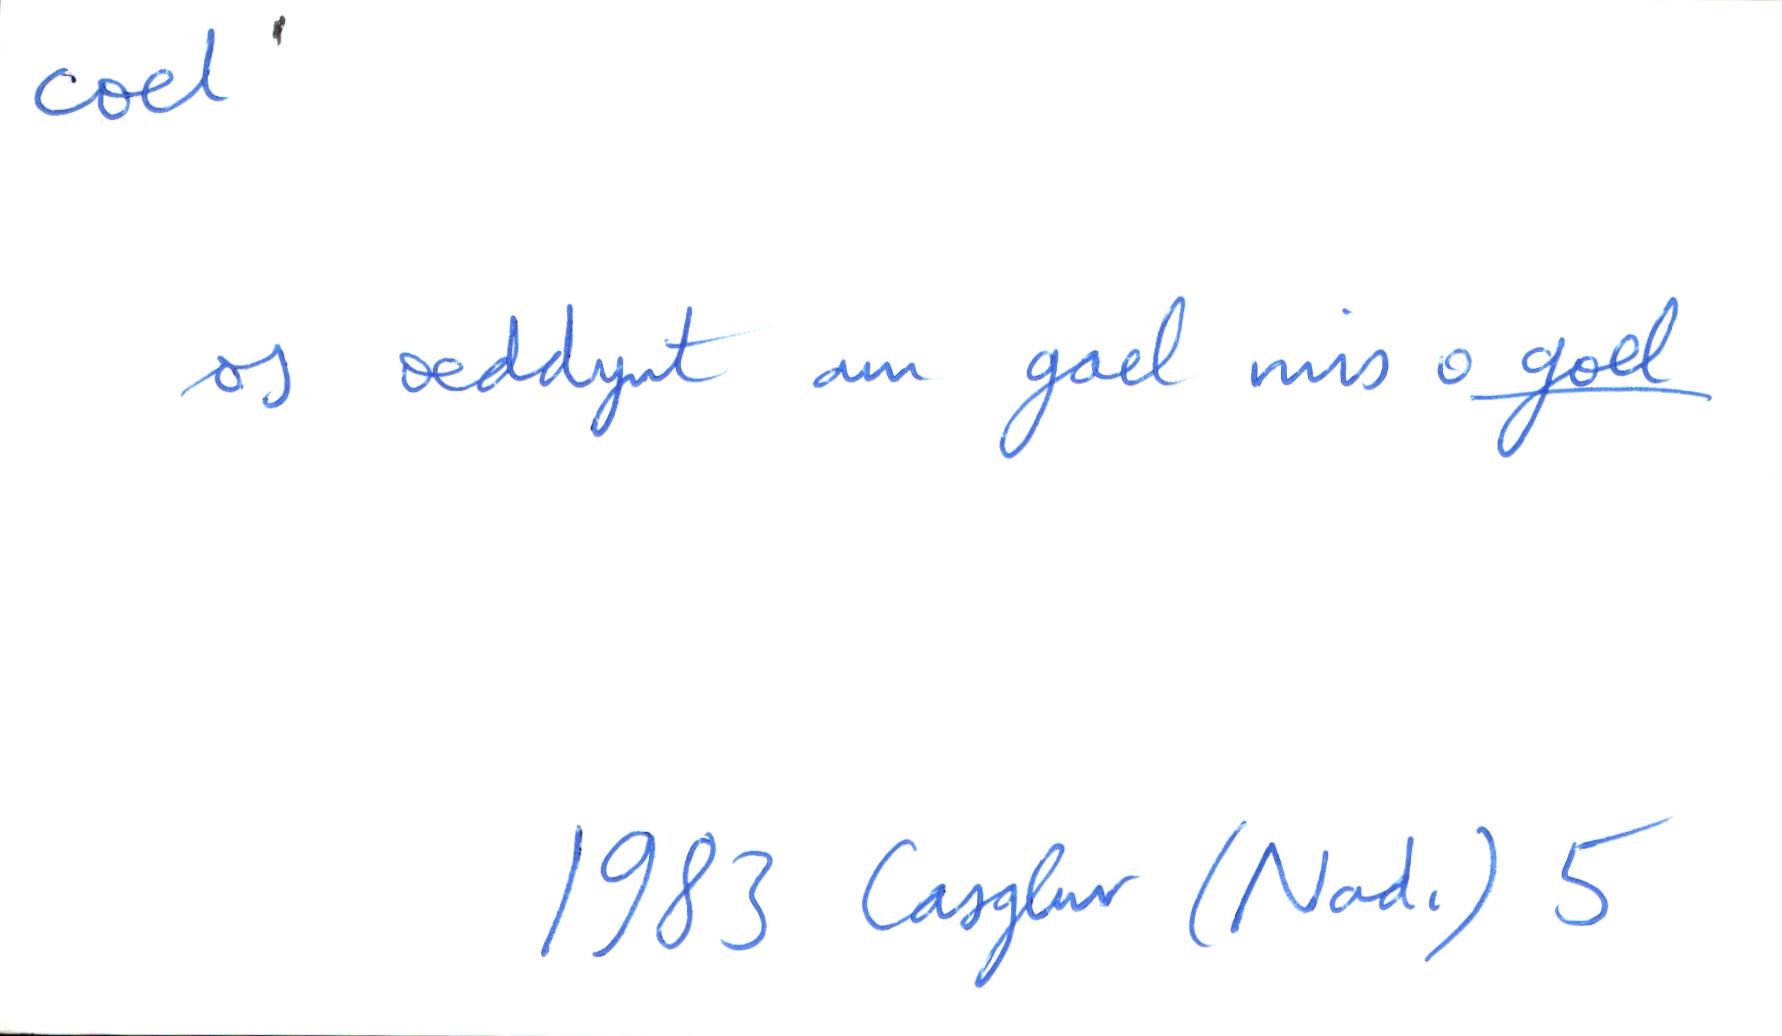 coel'
os oeddynt am gael mis o goel
1983 Casglwr (Nad.) 5